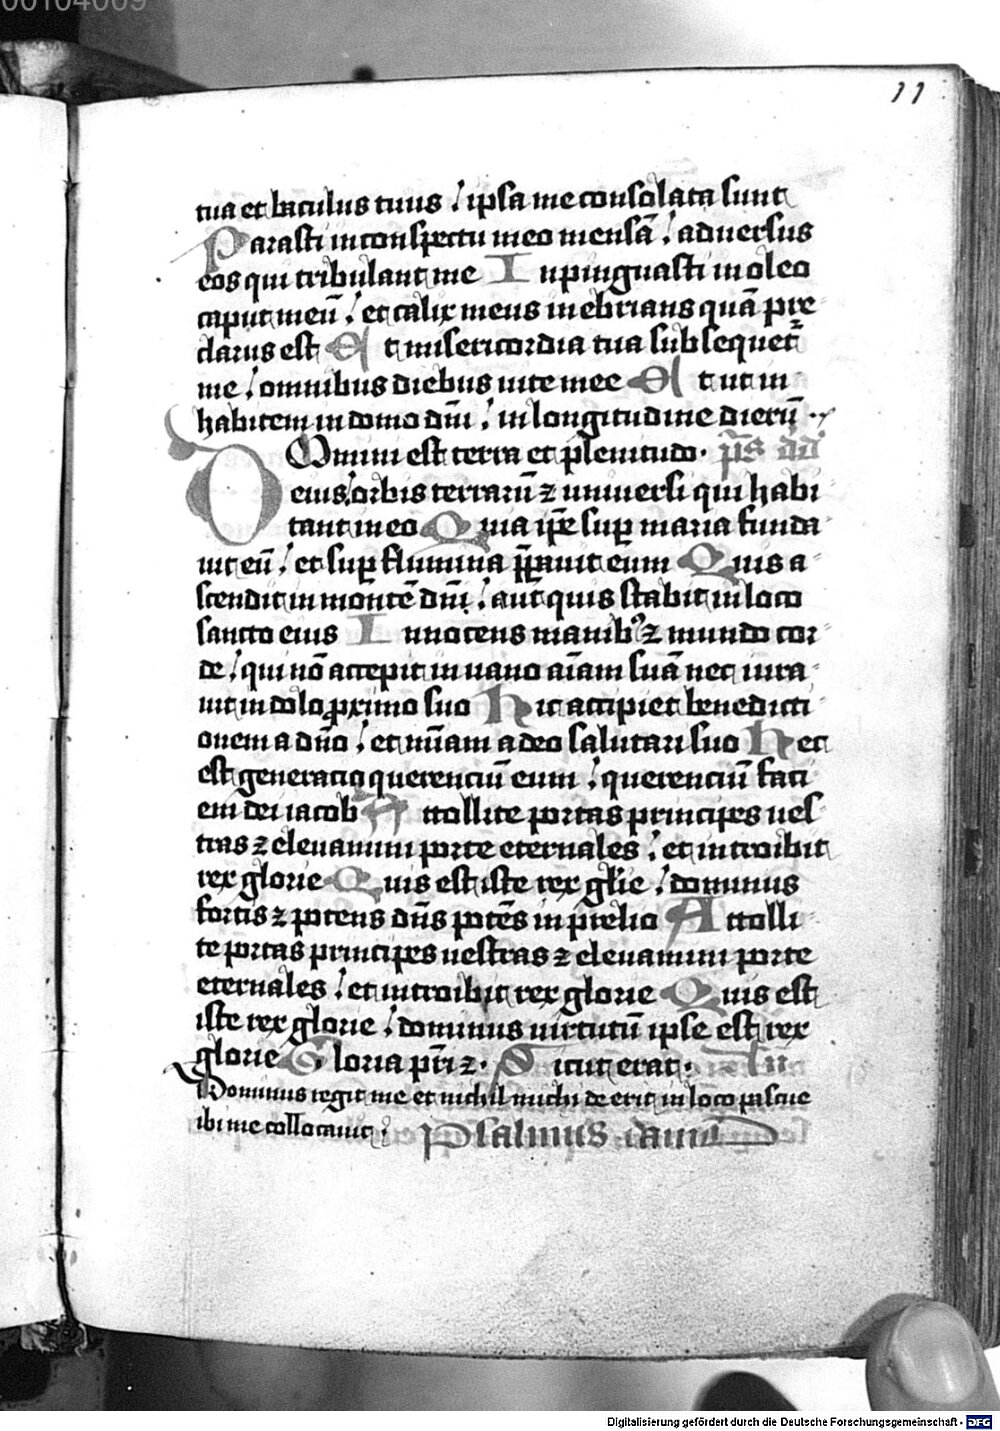 00104009
11
tua et baculus tuus / ipsa me consolata sunt
Parasti in conspectu meo mensā / adversus
eos qui tribulant me Inpinguasti in oleo
caput meū / et calix meus inebrians quā pre
clarus est Et misericordia tua subsequet᷑
me / omnibus diebus vite mee Et ut in
habitem in domo dn̄i / in longitudine dierū
Domini est terra et plenitudo. p̄s dd̄
eius / orbis terrarū ⁊ universi qui habi
tant in eo Quia ip̄e sup̱ maria funda
vit eū / et sup̱ flumina p̱p̱avit eum Quis a
scendit in montē dn̄i / aut quis stabit in loco
sancto eius Innocens manib⁹ ⁊ mundo cor
de / qui nō accepit in vano aīam suā nec iura
vit in dolo ꝓximo suo Hic accipiet benedicti
onem a dn̄o / et mīam a deo salutari suo Hec
est generatio querenciū eum / querenciū faci
em dei iacob Attollite portas principes ves
tras ⁊ elevamini porte eternales / et introibit
rex glorie Quis est iste rex gl̄ie / dominus
fortis ⁊ potens dn̄s potēs in prelio Attolli
te portas principes vestras ⁊ elevamini porte
eternales / et introibit rex glorie Quis est
iste rex glorie / dominus virtutū ipse est rex
glorie Gloria pr̄i ⁊. Sicut erat.
Dominus regit me et nichil michi deerit in loco pascue
ibi me collocavit / Psalmus david
Digitalisierung gefördert durch die Deutsche Forschungsgemeinschaft - DFG